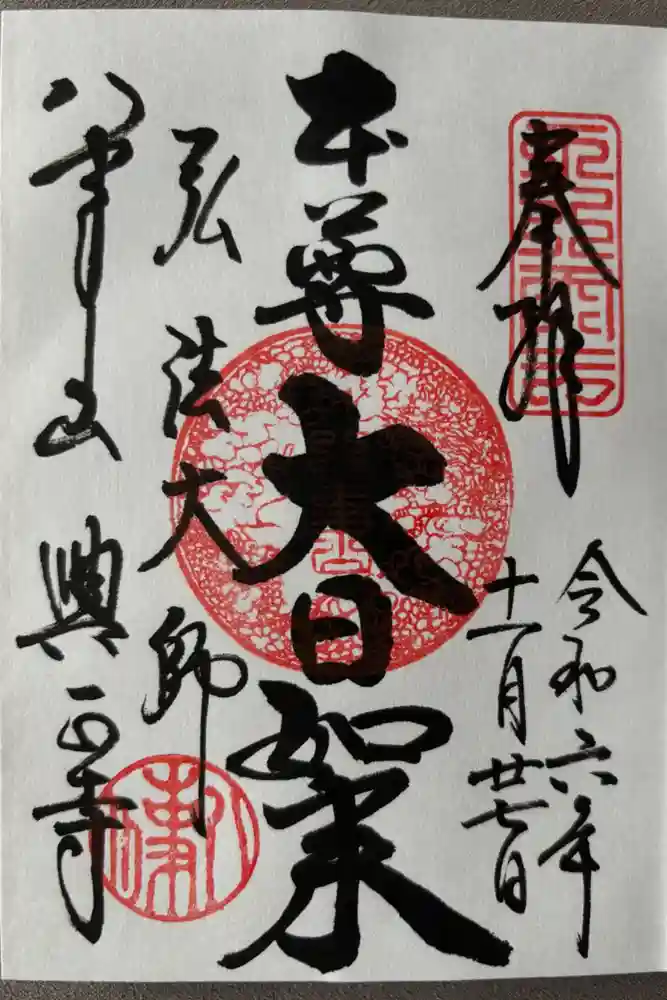 奉拝
令和六年
十一月廿七日
本尊大日如来
弘法大師
八事山興正寺